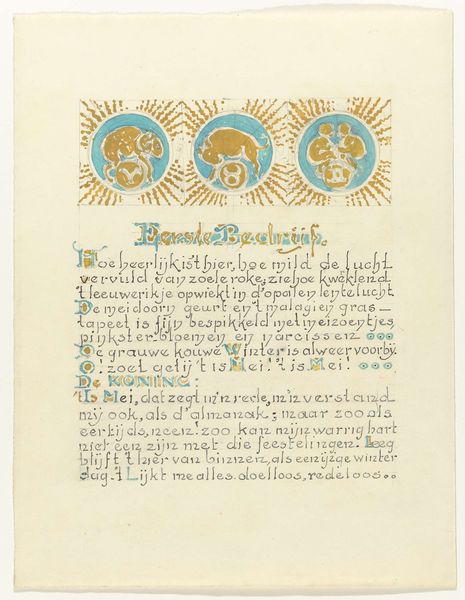 Eerste Bedrijf.
Hoe heerlijk is't hier, hoe mild de lucht
vervuld van zoele roke; zie hoe kwêklend
't leeuwerikje opwiekt in d'opalen lentelucht.
De meidoorn geurt en 't malsgien gras-
tapeet is fijn bespikkeld met meizoentjes
pinksterbloemen en narcissen
De grauwe kouwe Winter is alweer voorby.
O! zoet getij 't is Mei! 't is Mei!
De KONING:
't Is Mei, dat zegt m'n rede, m'n verstand
mij ook, als d'almanak; maar zoo als
eertijds, neen: zoo kan mijn warrig hart
niet één zijn met die feestelingen. Leeg
blijft 't hier van binnen, als een ijzge winter
dag. 't Lijkt me alles doelloos, redeloos..